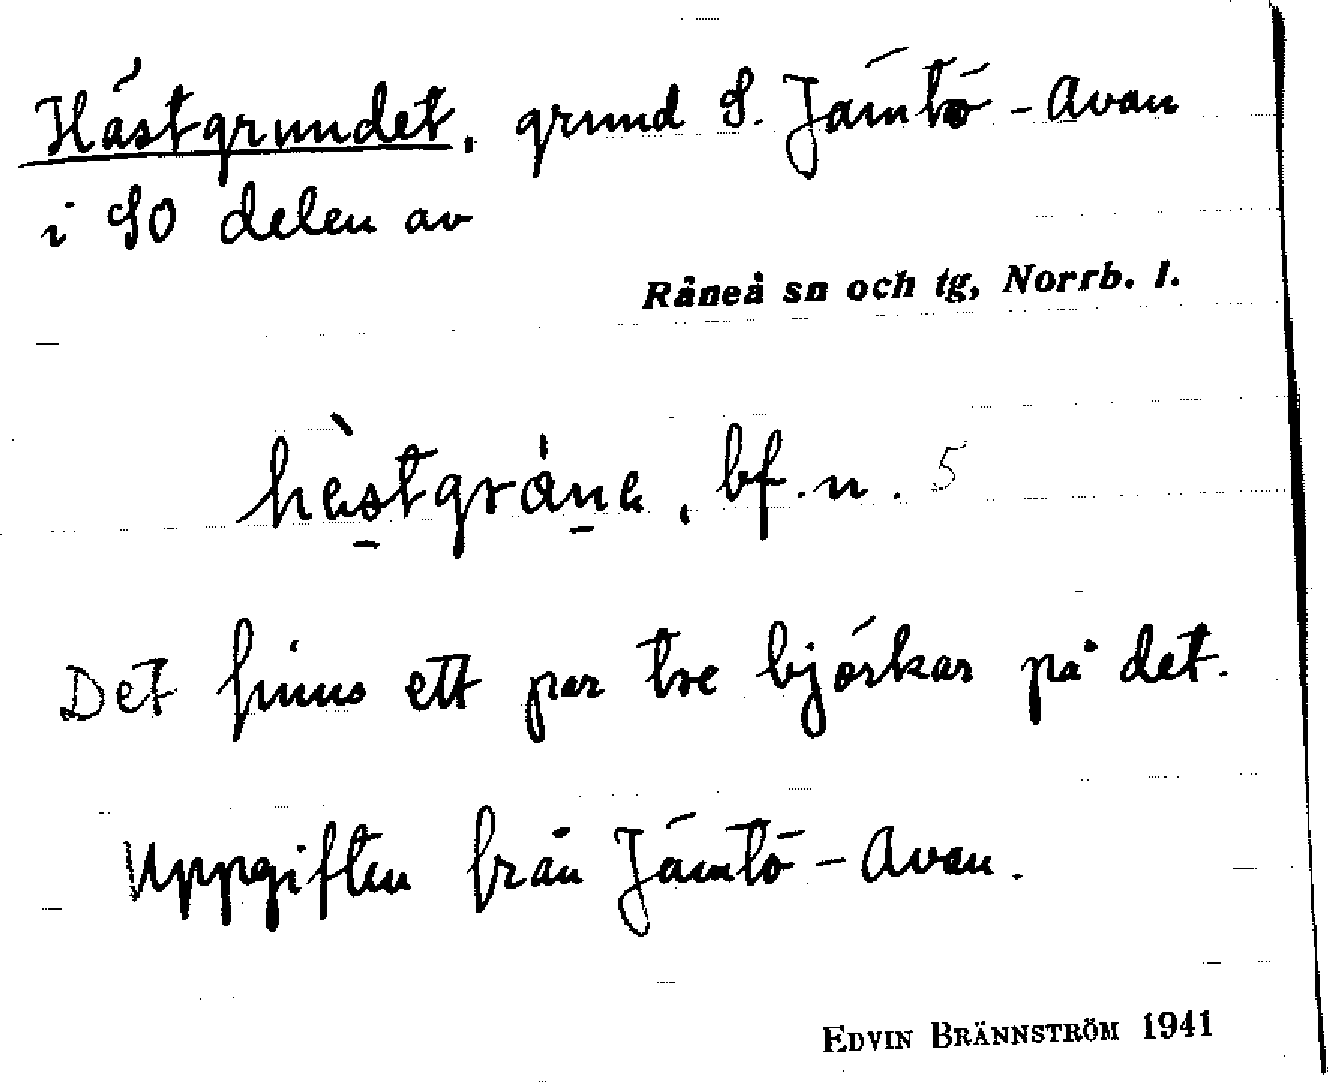 Hästgrundet, grund S. Jämtö-Avan
i SO delen av
Råneå sn och tg, Norrb. l.
hèstgráne, bf. n. 5
Det finns ett par tre björkar på det.
Uppgiften från Jämtö-Avan.
EDVIN BRÄNNSTRÖM 1941